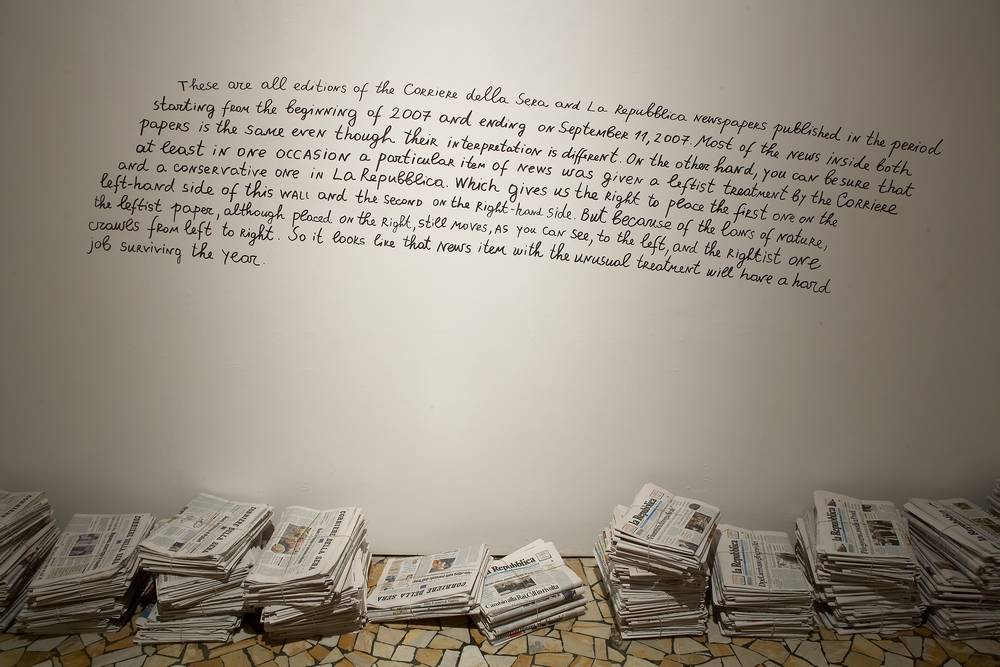 These are all editions of the Corriere della Sera and La Repubblica newspapers published in the period
starting from the beginning of 2007 and ending on September 11, 2007. Most of the news inside both
papers is the same even though their interpretation is different. On the other hand, you can be sure that
at least in one occasion a particular item of news was given a leftist treatment by the Corriere
and a conservative one in La Repubblica. Which gives us the right to place the first one on the
left-hand side of this wall and the second on the right-hand side. But because of the laws of nature,
the leftist paper, although placed on the right, still moves, as you can see, to the left, and the rightist one
crawles from left to right. So it looks like that news item with the unusual treatment will have a hard
job surviving the year.
CORRIERE DELLA SERA
CORRIERE DELLA SERA
CORRIERE DELLA SERA
CORRIERE DELLA SERA
la Repubblica
la Repubblica
la Repubblica
la Repubblica